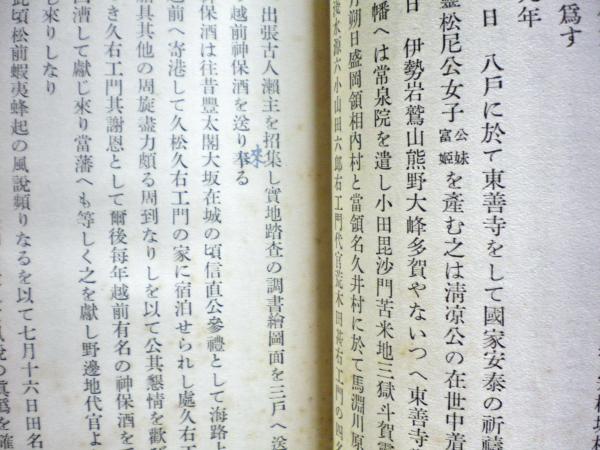 爲す
九年
日　八戸に於て東善寺をして國家安泰の祈禱
靈松尼公女子公妹富姫を產む之は淸凉公の在世中着
日　伊勢岩鷲山熊野大峰多賀やないつへ東善寺
幡へは常泉院を遣し小田毘沙門苫米地三獄斗賀靈
月朔日盛岡領相内村と當領名久井村に於て馬淵川原
淺水源六小山田六郎右工門代官荒木田茂右工門の四名
出張古人瀨主を招集し實地踏査の調書繪圖面を三戸へ送
り越前神保酒を送り奉る
来
神保酒は往昔豐太閤大坂在城の頃信直公參禮として海路上
越前へ寄港して久松久右工門の家に宿泊せられし處久右工
具其他の周旋盡力頗る周到なりしを以て公其懇情を歡び
き久右工門其謝恩として爾後每年越前有名の神保酒を
漕して獻じ來り當藩へも等しく之を獻し野邊地代官よ
し來りしなり
此頃松前蝦夷蜂起の風說頻りなるを以て七月十六日田名